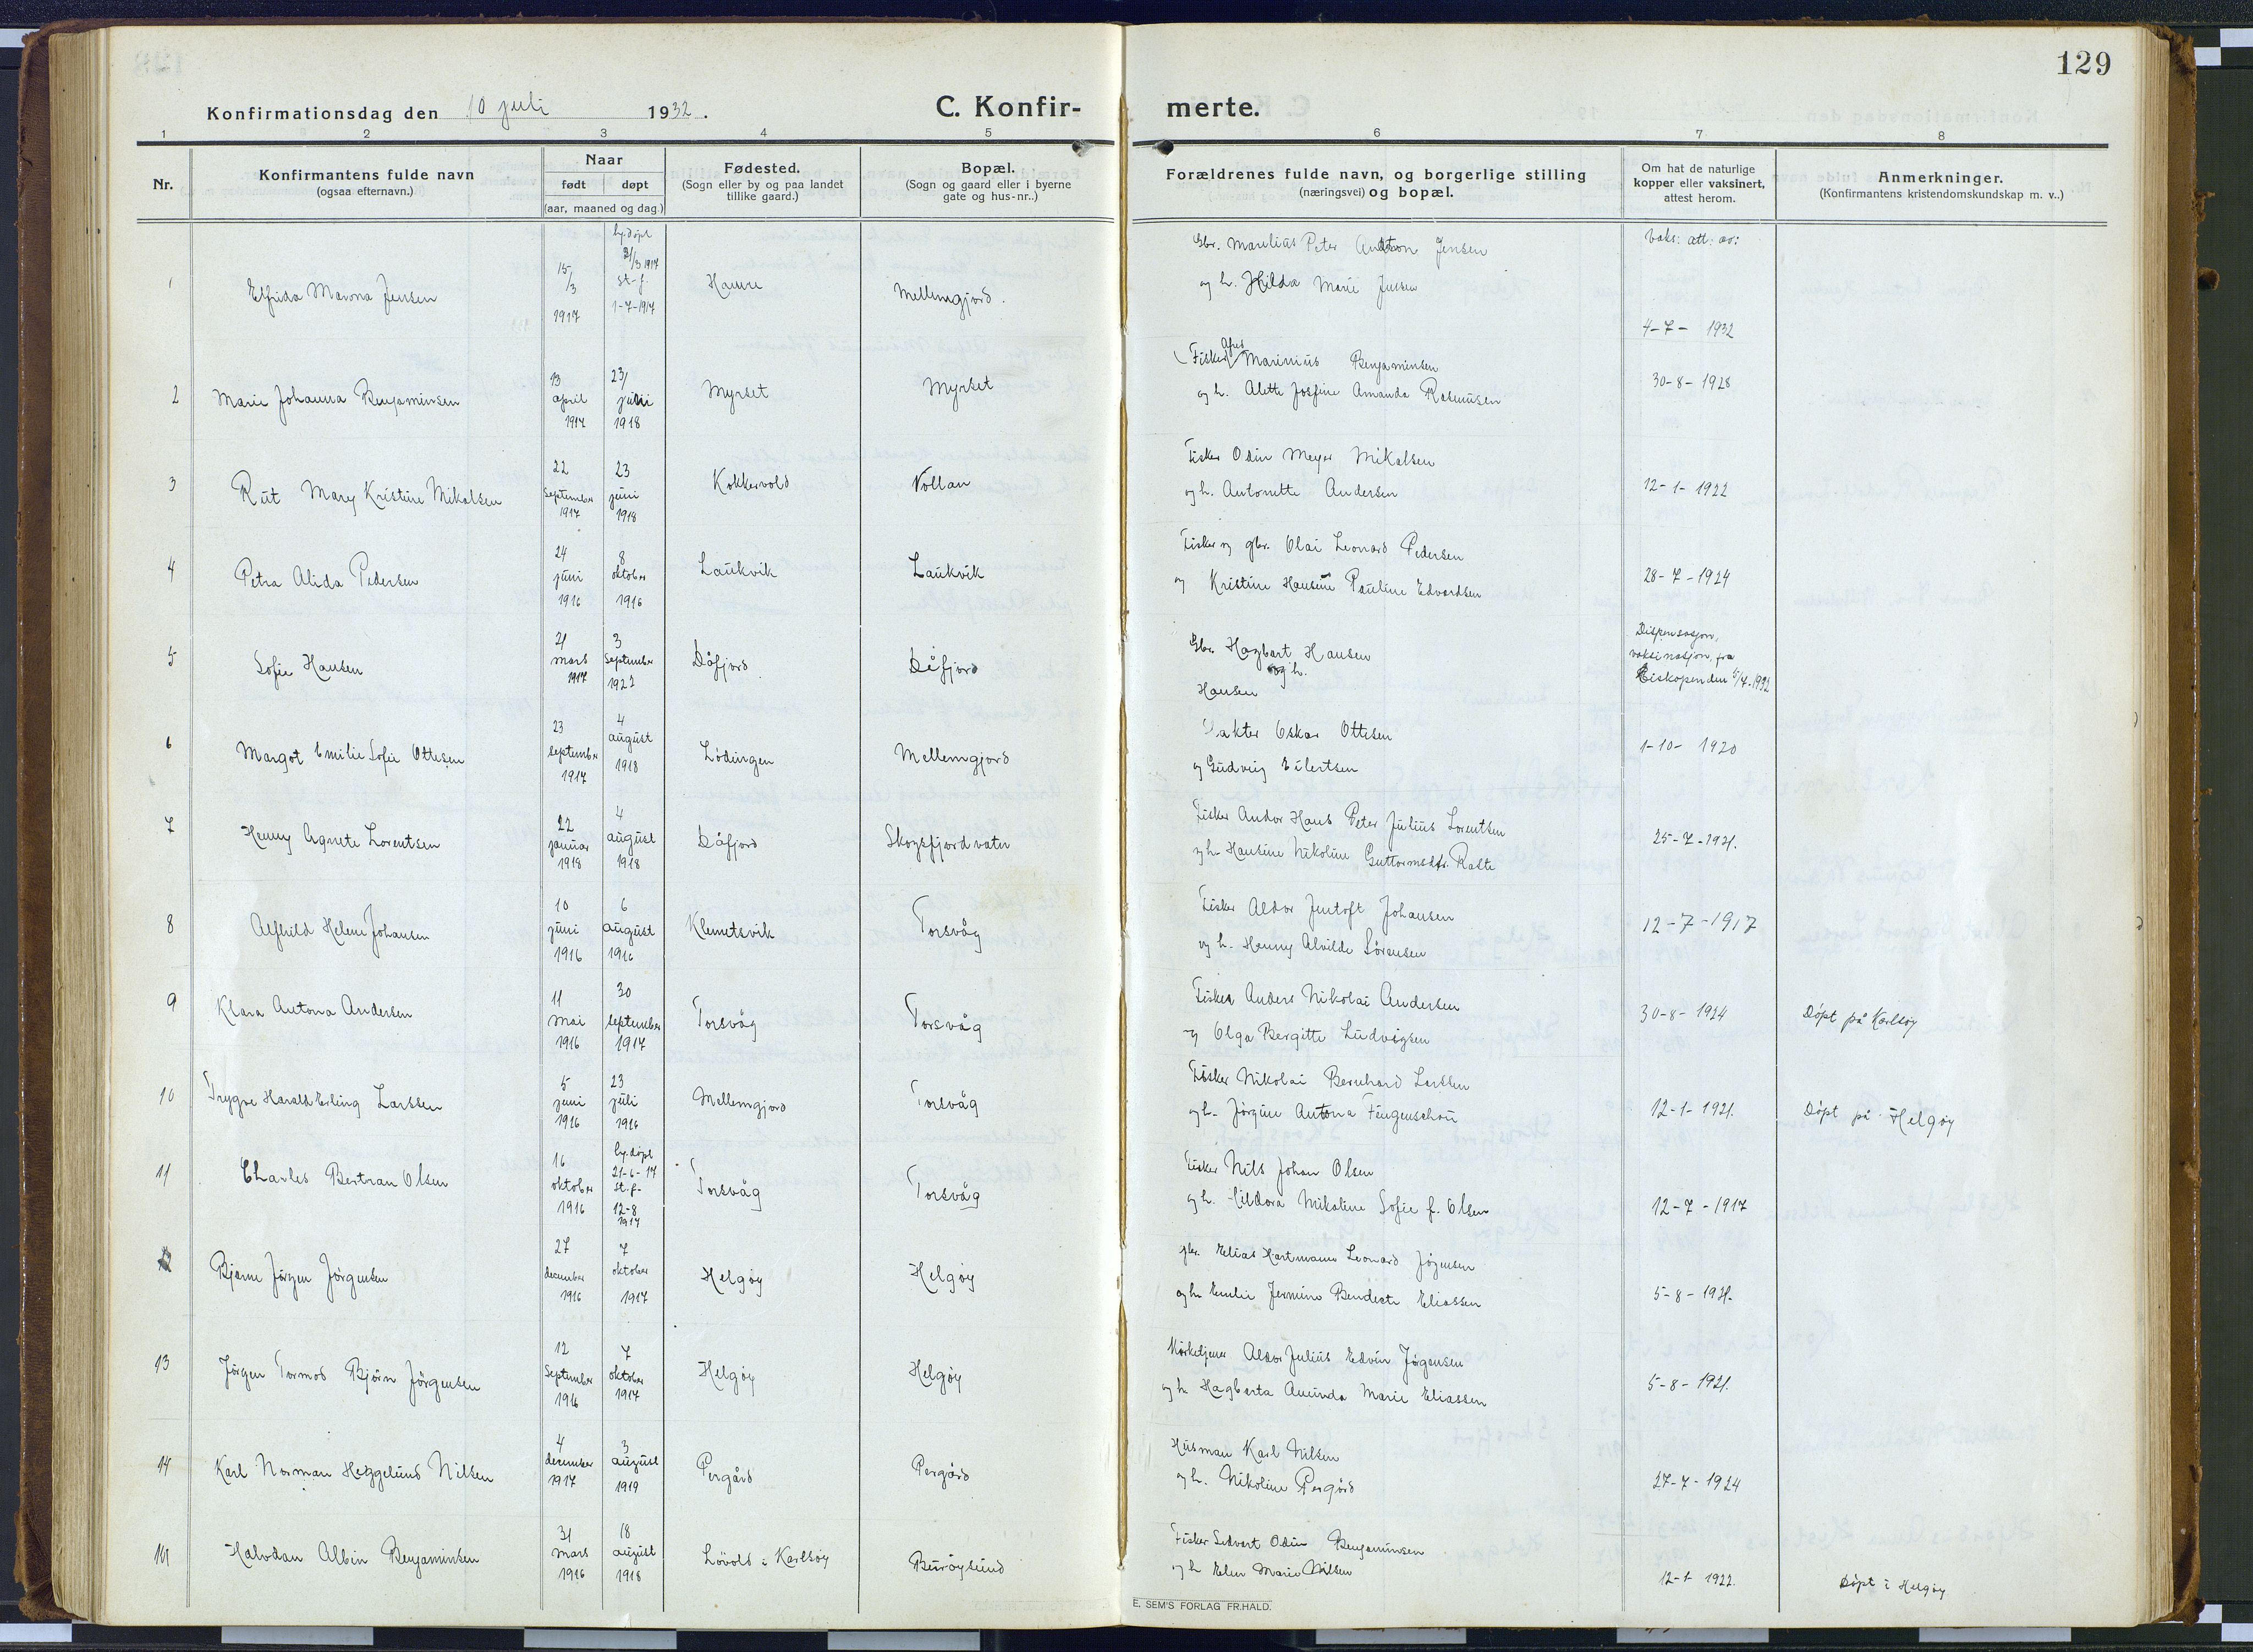 129
Konfirmationsdag den 10 juli 1932.
C. Konfir-
merte.
1 2 3 4 5 6 7 8
Nr.
Konfirmantens fulde navn
(ogsaa efternavn.)
Naar
født døpt
(aar, maaned og dag.)
Fødested.
(Sogn eller by og paa landet
tillike gaard.)
Bopæl.
(Sogn og gaard eller i byerne
gate og hus-nr..)
Forældrenes fulde navn, og borgerlige stilling
(næringsvei) og bopæl.
Om hat de naturlige
kopper eller vaksinert,
attest herom.
Anmerkninger.
(Konfirmantens kristendomskundskap m. v..)
1
Elfrida Marona Jensen
15/3
1917
hj.døpt
21/3 1917
st-f.
1-7-1917
Hamre
Mellemgjord.
Gbr. Marelius Peter Anton Jensen
og h. Hilda Marie Jensen
Vaks: att: av:
4-7- 1932
2
Marie Johanna Benjaminsen
13
april
1917
23/
juni
1918
Myrset
Myrset
Fisker Marinius Benjaminsen
og h. Alette Josfine Amanda Rasmussen
30-8-1928
3
Rut Mary Kristine Mikalsen
22
September
1917
23
juni
1918
Kokkervold
Vollan
Fisker Odin Meyer Mikalsen
og h. Antonette Andersen
12-1-1922
4
Petra Alida Pedersen
24
juni
1916
8
oktober
1916
Laukvik
Laukvik
Fisker og gbr. Olai Leonard Pedersen
og Kristine Hansine Pauline Edvardsen
28-7-1924
5
Sofie Hansen
21
mars
1917
3
September
1922
Dåfjord
Dåfjord
Gbr. Hagbart Hansen
og h.
Hansen
Dispensasjon,
vaksinasjon, fra
Biskopen den 5/7-1932
6
Margot Emilie Sofie Ottesen
23
september
1917
4
august
1918
Lödingen
Mellemgjord
Vakter Oskar Ottesen
og Gudveig Eilertsen
1-10- 1920
7
Henny Agnete Lorentsen
22
januar
1918
4
august
1918
Dåfjord
Skogsfjordvatn
Fisker Andor Hans Peter Julius Lorentsen
og h. Hansine Nikoline Guttormsdtr. Raste
25-7-1921.
8
Alfhild Helene Johansen
10
juni
1916
6
august
1916
Klemetsvik
Torsvåg
Fisker Aldor Jentoft Johansen
og h. Henny Alvilde Sörensen
12-7-1917
9
Klara Antona Andersen
11
mai
1916
30
september
1917
Torsvåg
Torsvåg
Fisker Anders Nikolai Andersen
og Olga Bergitte Ludvigsen
30-8-1924
Döpt på Karlsöy
10
Trygve Harald Erling Larssen
5
juni
1916
23
juli
1916
Mellemgjord
Torsvåg
Fisker Nikolai Bernhard Larssen
og h. Jörgine Antona Fengenschou
12-1-1921.
Döpt på Helgöy
11
Charles Bertran Olsen
16
oktober
1916
hj.døpt
21-6-17
st.f-
12-8
1917
Torsvåg
Torsvåg
Fisker Nils Johan Olsen
og h. Mikoline Sofie f. Olsen
12-7-1917
12
Bjarne Jörgen Jörgensen
27
december
1916
7
oktober
1917
Helgöy
Helgöy
gbr. Elias Hartmann Leonard Jögensen
og h. Emilie Jermine Bendecte Eliassen
5-8-1921.
13
Jörgen Tormod Björn Jörgensen
12
September
1916
7
oktober
1917
Helgöy
Helgöy
Kirketjener Aldor Julius Edvin Jögensen
og h. Hagberta Amunda Marie Eliassen
5-8-1921.
14
Karl Norman Heggelund Nilsen
4
december
1917
3
august
1919
Pergård
Pergård
Husman Karl Nilsen
og h. Nikoline Pergård
27-7-1924
Halvdan Albin Benjaminsen
31
mars
1916
18
august
1918
Lövold i Karlsöy
Buröysund
Fisker Sedvart Odin Benjaminsen
og h Elen Marie Nilsen
12-1-1922.
Döpt i Helgöy
E. SEM'S FORLAG FR.HALD.